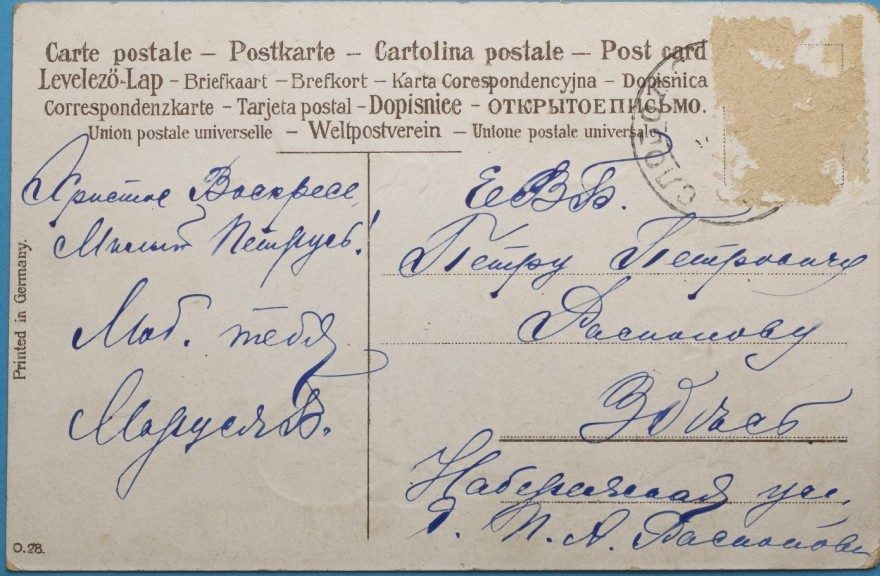 Carte postale – Postkarte – Cartolina postale – Post card
Levelező-Lap – Briefkaart – Brefkort – Karta Corespondencyjna – Dopisnica
Correspondenzkarte – Tarjeta postal – Dopisnice – ОТКРЫТОЕ ПИСЬМО.
Union postale universelle – Weltpostverein – Unione postale universale
Христос Воскресе,
Милый Петрусь!
Люб. тебя
Маруся Б.
Printed in Germany.
O.28.
Е В Б.
Петру Петровичу
Распопову
Здѣсь
Набережная ул.
д. П. А. Распопова